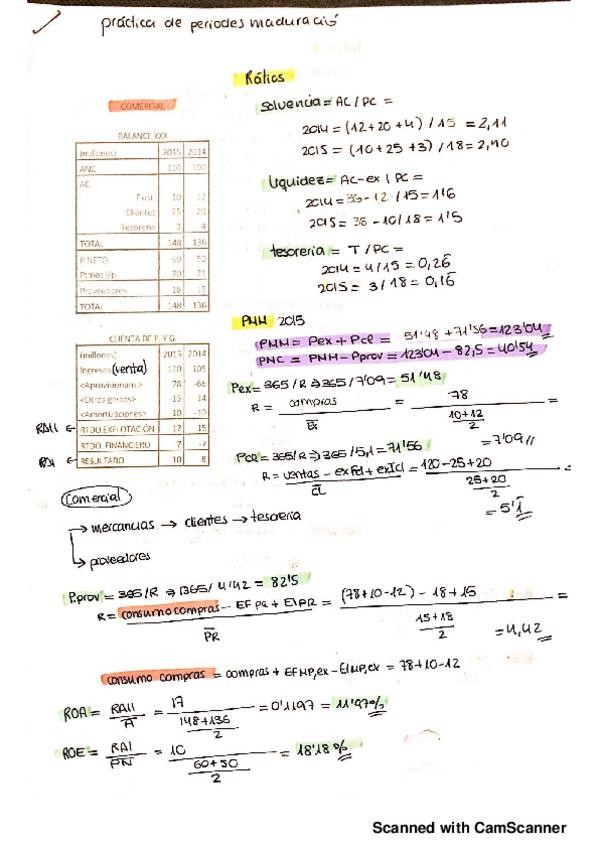 práctica de periodes maduració
Rátios
COMERCIAL
Solvencia = AC / PC =
2014 = (12+20+4) / 15 = 2,11
2015 = (10+25+3) / 18 = 2,40
BALANCE XXX
(millones) 2015 2014
ANC 110 100
AC
Exist 10 12
Clientes 25 20
Tesorería 3 4
TOTAL 148 136
P.NETO 60 50
Ptmos l/p 70 71
Proveedores 18 15
TOTAL 148 136
Liquidez = AC-ex / PC =
2014 = 36 - 12 / 15 = 1'6
2015 = 38 - 10 / 18 = 1'5
tesoreria = T / PC =
2014 = 4/15 = 0,26
2015 = 3/18 = 0,16
PMM 2015
PMM = Pex + Pcl = 51'48 + 71'56 = 123'04
PMC = PMM - Pprov = 123'04 - 82,5 = 40'54
CUENTA DE P. Y G.
(millones) 2015 2014
Ingresos (venta) 120 105
<Aprovisionam.> 78 -66
<Otros gastos> -15 14
<Amortizaciones> 10 -10
RAII ← RTDO.EXPLOTACIÓN 17 15
RTDO. FINANCIERO 7 -7
RAI ← RESULTADO 10 8
Pex = 365/R ⇒ 365/7'09 = 51'48
R = compras / Ex = 78 / (10+12 / 2) =
= 7'09 //
Pcl = 365/R ⇒ 365/5,1 = 71'56
R = ventas - exFcl + exIcl / CL = 120 - 25 + 20 / (25+20 / 2) =
= 5'1
Comercial
→ mercancias → clientes → tesoreria
→ proveedores
Pprov = 365/R ⇒ 1365/4'42 = 82'5
R = consumo compras - EF PR + EI PR / PR = (78+10-12) - 18 + 15 / (15+18 / 2) =
= 4,42
consumo compras = compras + EFMP,ex - EIMP,ex = 78+10-12
ROA = RAII / A = 17 / (148+136 / 2) = 0'1197 = 11'97%
ROE = RAI / PN = 10 / (60+50 / 2) = 18'18%
Scanned with CamScanner